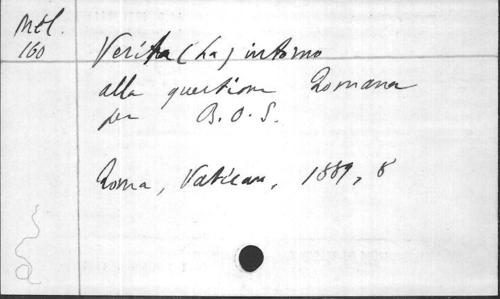 Mél.
160
Verità (La) intorno
alla questione Romana
per B.O.S.
Roma, Vatican, 1889, 8